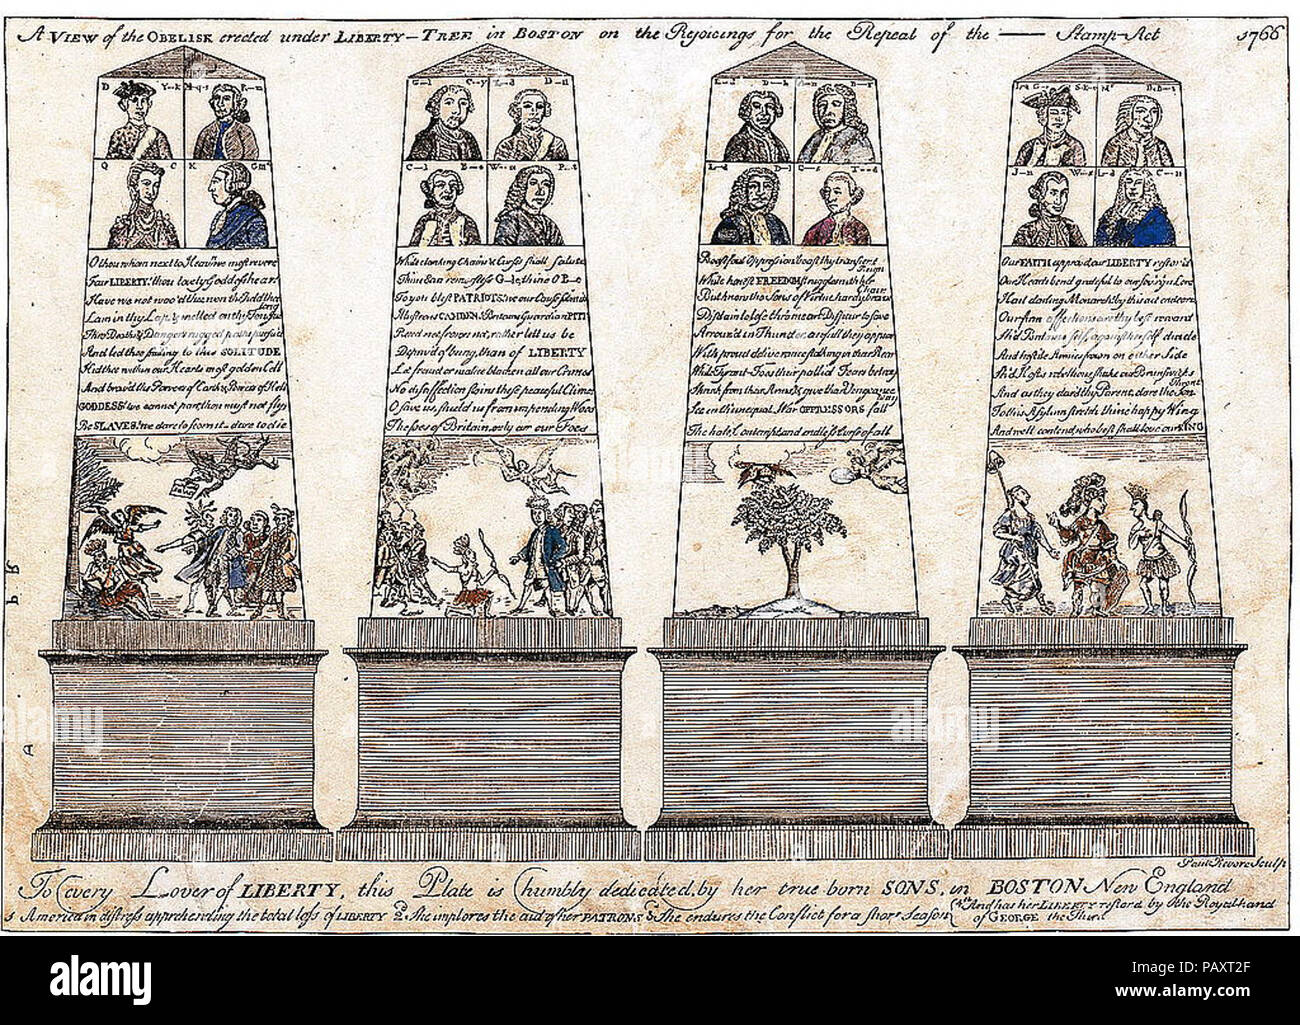 A VIEW of the OBELISK erected under LIBERTY-TREE in BOSTON on the Rejoicings for the Repeal of the — Stamp-Act 1766
D Y--k M-q-s R---m
Q C K G IIId
G---l C---y L--d D---n
C--l B--e W---m P--t
L--d D---h A--n B---d
L--d D--l C---s T---d
L--d G--- S-k--e Mr DeB--t
J--n W---s L--d C---n
O thou whom next to Heav'n we most revere
Fair LIBERTY! thou lovely Goddess hear!
Have we not woo'd thee, won thee, held thee long
Lain in thy Lap & melted on thy Tongue
Thro Deaths & Dangers rugged paths pursu'd
And led thee smiling to this SOLITUDE
Hid thee within our Hearts most golden Cell
And brav'd the Powers of Earth & Powers of Hell
GODDESS! we cannot part, thou must not fly;
Be SLAVES! we dare to scorn it - dare to die
While clanking Chains & Curses shall salute
Thine Ears remorseless G---le, thine O B---e
To you blest PATRIOTS, we our Cause submit
Illustrous CAMDEN, Britons Guardian PITT
Recede not, frown not, rather let us be
Depriv'd of being, than of LIBERTY
Let fraud or malice blacken all our Crimes
No disaffection stains these peaceful Climes
O save us, shield us from impending Woes
The foes of Britain, only are our Foes
Boast foul Oppression, boast thy transient Reign
While honest FREEDOM struggles with her Chain
But know the Sons of Virtue, hardy, brave
Disdain to lose thro mean Dispair to save
Arrow'd in Thunder, awfull they appear
With proud deliverance stalking in their Rear
While Tyrant-Foes their pallid Fears betray
Shrink from their Arms & give their Vengeance way
See in th'unequal War OPPRESSORS fall
The hate, Contempt, and endless Curse of all
Our FAITH approv'd our LIBERTY restor'd
Our Hearts bend grateful to our sov'rign Lord
Hail darling Monarch! by this act endear'd
Our firm affections are thy best reward
Sh'd Britains self, against herself divide
And hostile Armies frown on either Side
Sh'd Hosts rebellious, shake our Brunswick's Throne
And as they dar'd thy Parent, dare the Son
To this Asylum stretch thine happy Wing
And we'll contend, who best shall love our KING
Paul Revere Sculp
To Every Lover of LIBERTY, this Plate is Humbly dedicated, by her true born SONS, in BOSTON New England
America in distress apprehending the total loss of LIBERTY 2d. She implores the aid of her PATRONS 3d She endures the Conflict for a short Season 4th And has her LIBERTY restord by the Royal hand
of GEORGE the Third
alamy
PAXT2F
www.alamy.com